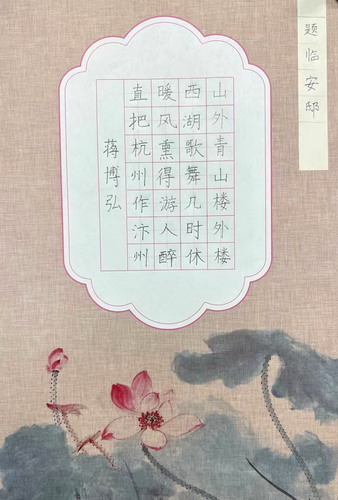 题临安邸
山外青山楼外楼
西湖歌舞几时休
暖风熏得游人醉
直把杭州作汴州
蒋博弘